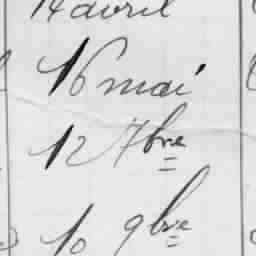 14 avril
16 mai
12 7bre
10 9bre